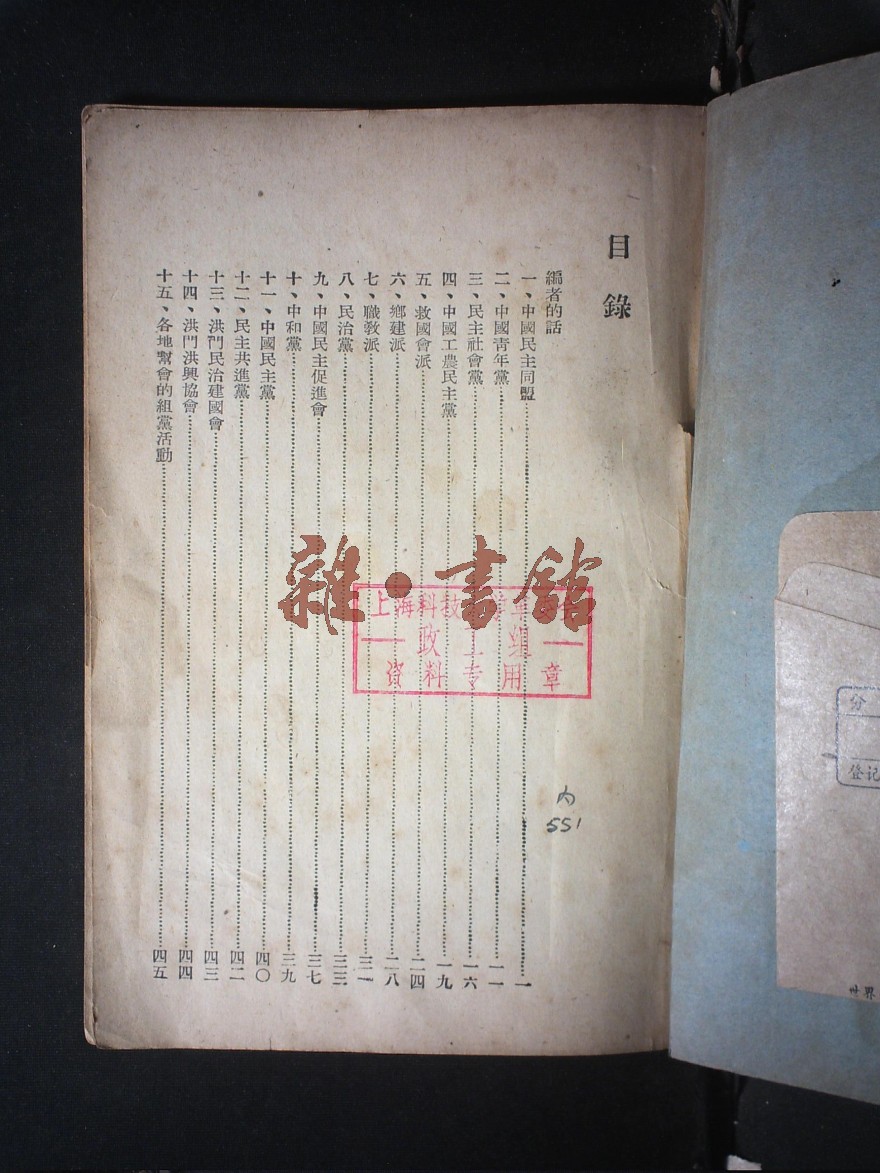 目錄
編者的話
一、中國民主同盟……一
二、中國靑年黨……一一
三、民主社會黨……一六
四、中國工農民主黨……一九
五、救國會派……二四
六、鄉建派……二八
七、職敎派……三一
八、民治黨……三三
九、中國民主促進會……三七
十、中和黨……三九
十一、中國民主黨……四〇
十二、民主共進黨……四二
十三、洪門民治建國會……四三
十四、洪門洪興協會……四四
十五、各地幫會的組黨活動……四五
雜·書館
上海科技
政工组
资料专用章
内
551
分
登记
世界